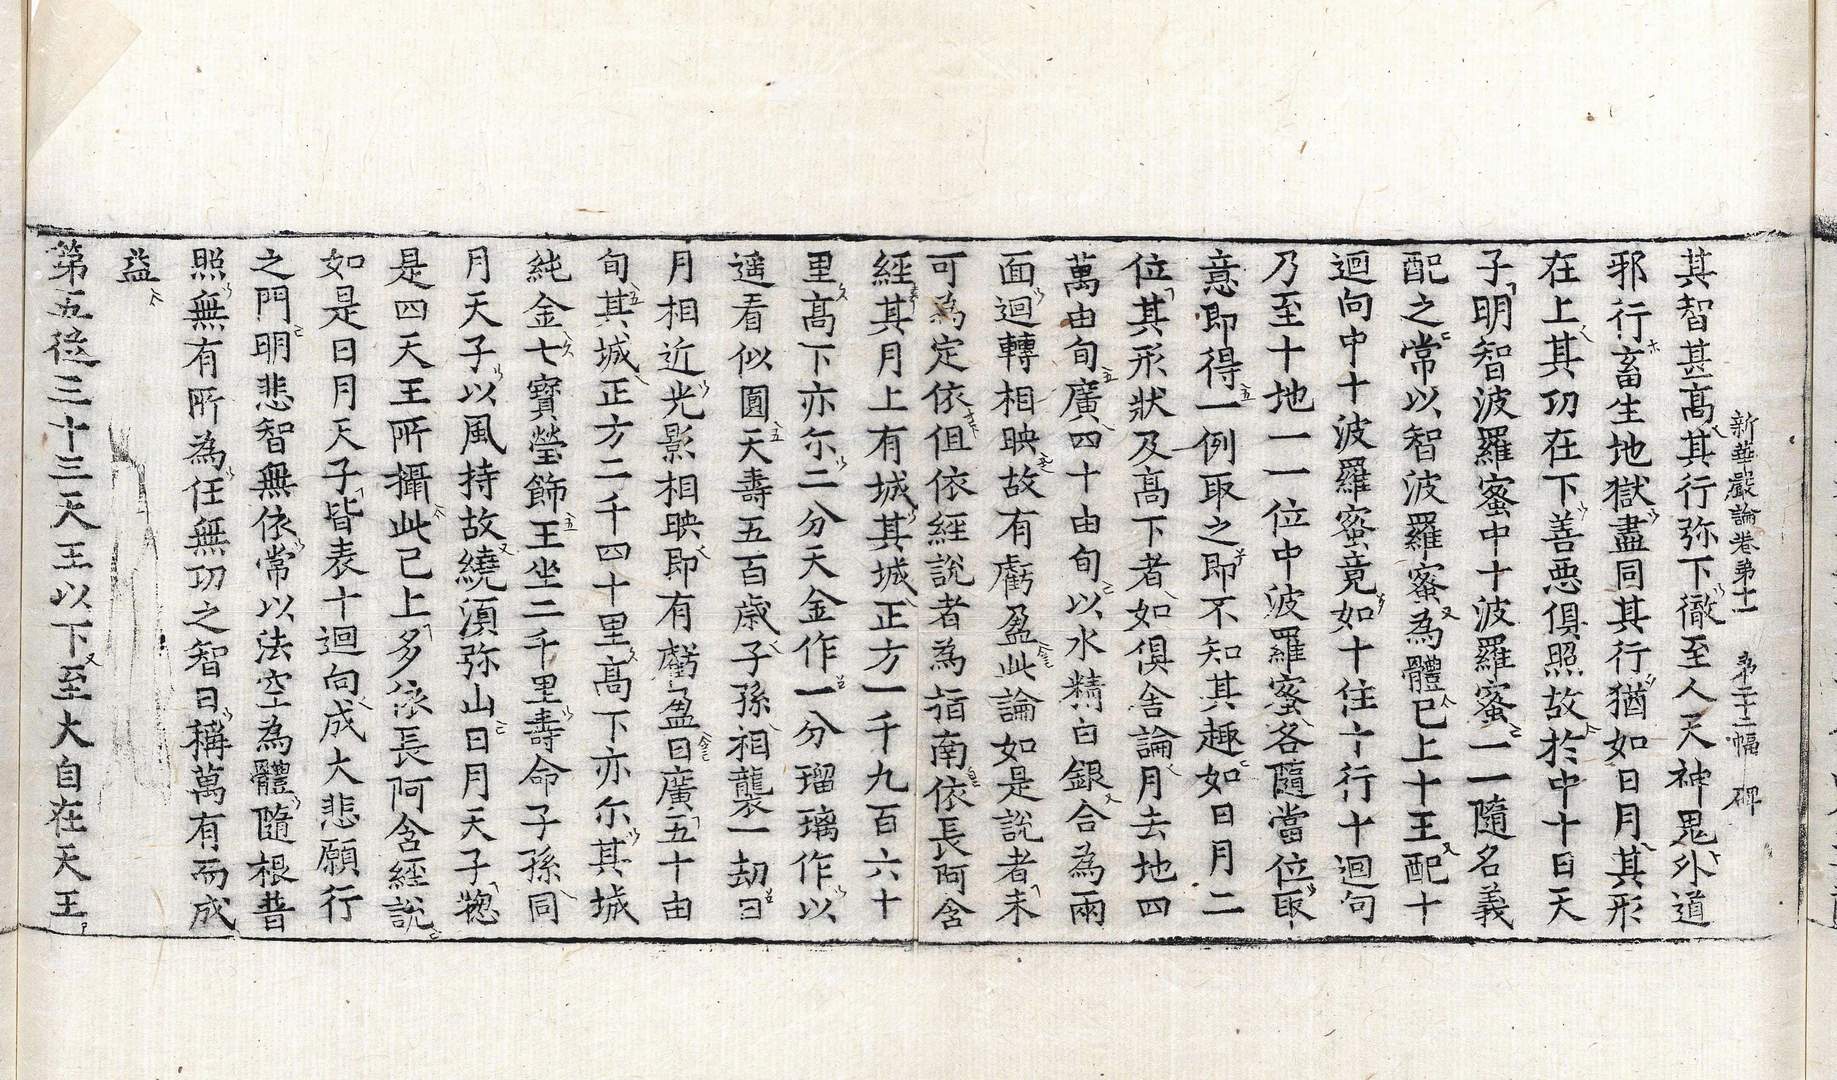 新華嚴論卷第十一　第二十二幅　碑
其智甚高其行弥下徹至人天神鬼外道
邪行畜生地獄盡同其行猶如日月其形
在上其功在下善惡俱照故於中十日天
子明智波羅蜜中十波羅蜜一一隨名義
配之常以智波羅蜜為體已上十王配十
迴向中十波羅蜜竟如十住十行十迴向
乃至十地一一位中波羅蜜各隨當位取
意即得一例取之即不知其趣如日月二
位其形狀及高下者如俱舍論月去地四
萬由旬廣四十由旬以水精白銀合為兩
面迴轉相映故有虧盈此論如是說者未
可為定依但依經說者為指南依長阿含
經其月上有城其城正方一千九百六十
里高下亦尓二分天金作一分瑠璃作以
遥看似圓天壽五百歲子孫相襲一劫日
月相近光影相映即有虧盈日廣五十由
旬其城正方二千四十里高下亦尓其城
純金七寶瑩飾王坐二千里壽命子孫同
月天子以風持故繞湏弥山日月天子惣
是四天王所攝此已上多依長阿含經說
如是日月天子皆表十迴向成大悲願行
之門明悲智無依常以法空為體隨根普
照無有所為任無功之智日稱萬有而成
益
第五從三十三天王以下至大自在天王